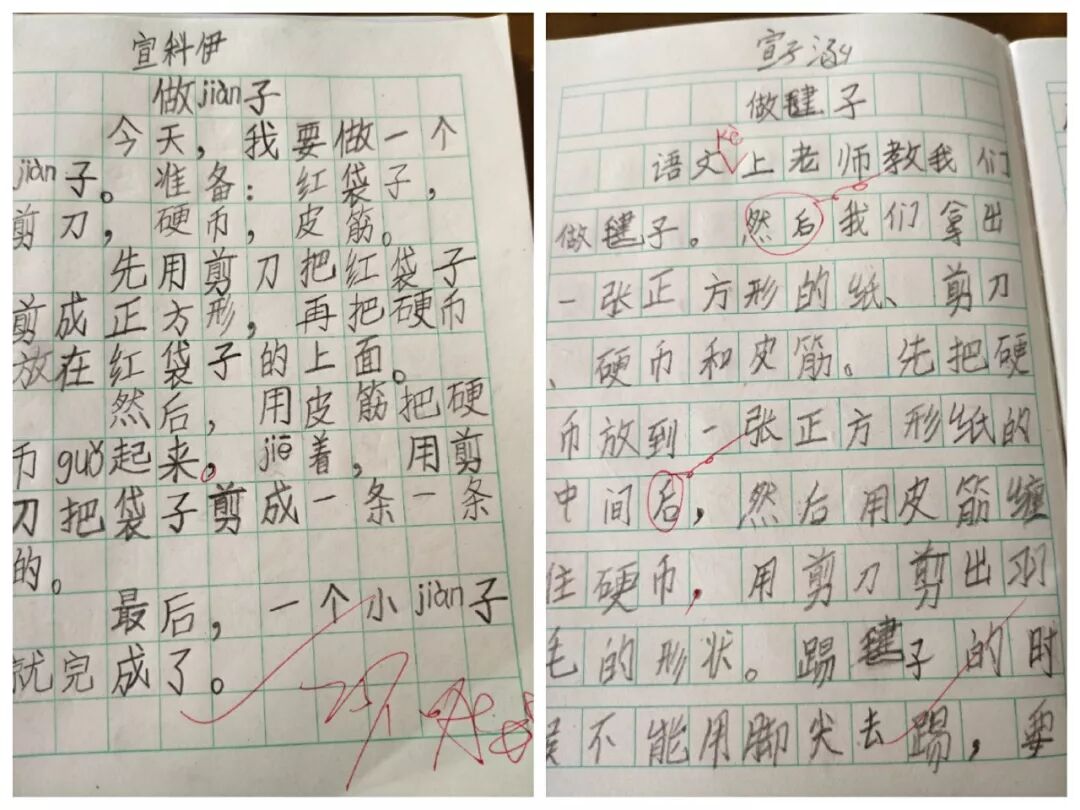 宣科伊
做jiàn子
今天，我要做一个
jiàn子。准备：红袋子，
剪刀，硬币，皮筋。
先用剪刀把红袋子
剪成正方形，再把硬币
放在红袋子的上面。
然后，用皮筋把硬
币guǒ起来。jiē着，用剪
刀把袋子剪成一条一条
的。
最后，一个小jiàn子
就完成了。
宣子涵
做毽子
kè
语文上老师教我们
做毽子。然后我们拿出
一张正方形的纸、剪刀
、硬币和皮筋。先把硬
币放到一张正方形纸的
中间后，然后用皮筋缠
住硬币，用剪刀剪出羽
毛的形状。踢毽子的时
候不能用脚尖去踢，要